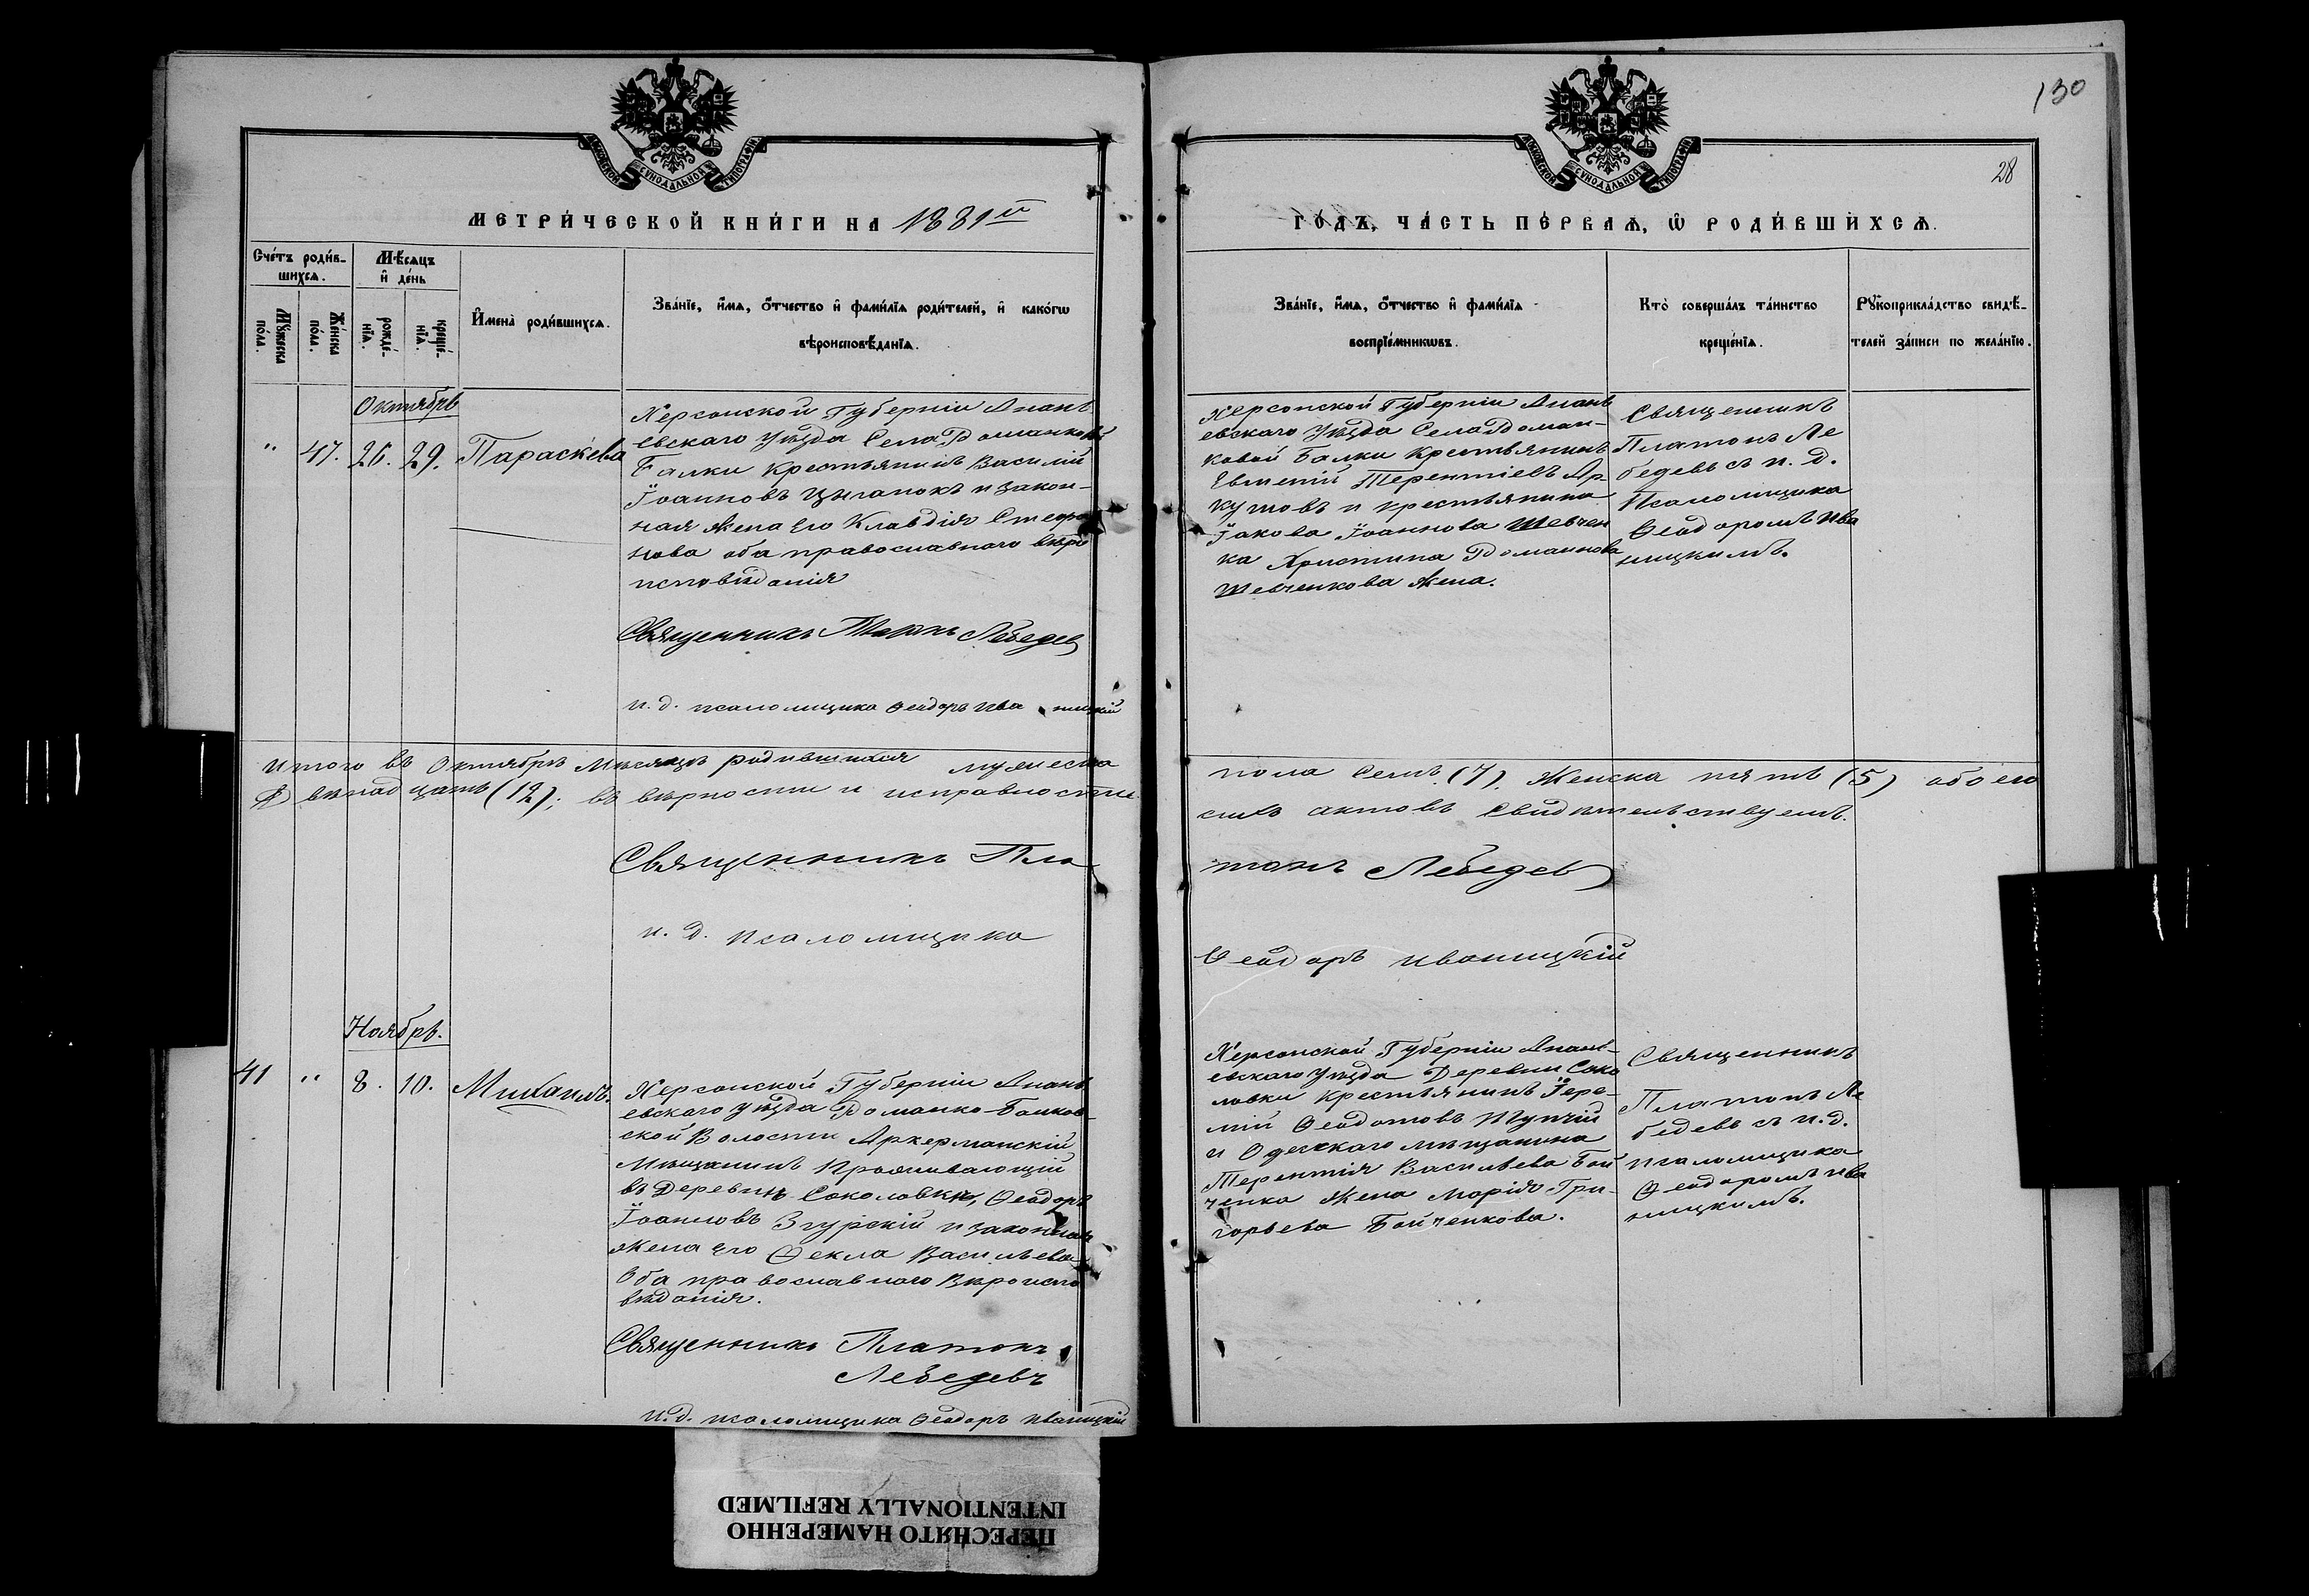 130
28
МОСКОВСКОЙ СѴНОДАЛЬНОЙ ТИПОГРАФІИ
МОСКОВСКОЙ СѴНОДАЛЬНОЙ ТИПОГРАФІИ
МЕТРИ́ЧЕСКОЙ КНИ́ГИ НА 1881й
ГО́ДЪ, ЧА́СТЬ ПЕ́РВАѦ, Ѿ РОДИ́ВШИХСѦ.
Сче́тъ роди́в-
шихсѧ.
Мꙋ́жеска по́ла.
Же́нска по́ла.
Мѣ́сѧцъ
и҆ де́нь
рожде́-
нїѧ.
креще́-
нїѧ.
И҆мена̀ роди́вшихсѧ.
Зва́нїе, и҆́мѧ, ѻ҆́тчество и҆ фами́лїѧ роди́телей, и҆ како́гѡ
вѣроисповѣ́данїѧ.
Зва́нїе, и҆́мѧ, ѻ҆́тчество и҆ фами́лїѧ
воспрїе́мникѡвъ.
Кто̀ соверша́лъ та́инство
креще́нїѧ.
Рꙋкоприкла́дство свидѣ́-
телей за́писи по жела́нїю.
Октябрь
" 47. 26. 29. Параскева
Херсонской Губерніи Анань
евскаго уѣзда Села Доманковой
Балки крестьянинъ Василій
Іоанновъ Цыганокъ и закон-
ная жена его Клавдія Стефа
нова оба православнаго вѣро
исповѣданія
Священникъ Платонъ Лебедев
и. д. псаломщика Ѳеодоръ Иваницкій
Херсонской Губерніи Анань
евскаго уѣзда Села Доман-
ковой Балки крестьянинъ
Евтеній Терентіевъ Ар-
кутовъ и крестьянина
Іакова Іоаннова Шевчен
ка Христина Доманнова
Шевченкова жена.
Священникъ
Платонъ Ле
бедевъ съ и. д.
Псаломщика
Ѳеодоромъ Ива
ницкимъ.
Итого въ Октябрѣ Мѣсяцѣ родившихся мужеска
пола Семь (7). Женска пять (5) обоего
Двѣнадцать (12); въ вѣрности и исправности
сихъ актовъ Свидѣтельствуемъ.
Священникъ Пла
тонъ Лебедев
и. д. псаломщика
Ѳеодоръ Иваницкій
Ноябрь.
41 " 8. 10. Михаилъ.
Херсонской Губерніи Анань
евскаго уѣзда Доманко-Балков-
ской Волости Аркерманскій
Мѣщанинъ Проживающій
въ Деревни Соколовки, Ѳеодоръ
Іоанновъ Згурскій и законная
жена его Ѳекла Васильева
Оба православнаго Вѣроиспо
вѣданія.
Священникъ Платонъ
Лебедевъ
и. д. псаломщика Ѳеодоръ Иваницкій
Херсонской Губерніи Анань-
евскаго уѣзда Деревни Соко
ловки крестьянинъ Іере-
мій Ѳеодотовъ Тупчій
и Одесскаго мѣщанина
Терентія Васильева Бой
ченка жена Марія Гри-
горьева Бойченкова.
Священникъ
Платонъ Ле
бедевъ съ и. д.
псаломщика
Ѳеодоромъ Ива
ницкимъ.
ПЕРЕСНЯТО НАМЕРЕННО
INTENTIONALLY REFILMED